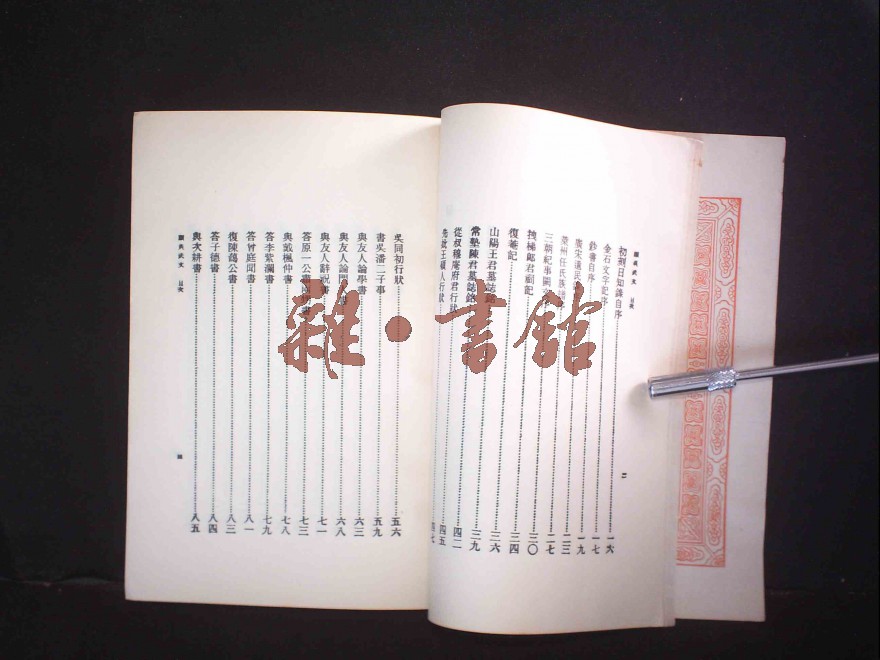 顧炎武文 目次
初刻日知錄自序 一六
金石文字記序 一七
鈔書自序 一九
廣宋遺民 二三
萊州任氏族譜 二七
三朝紀事闕文
拽梯郎君祠記 三〇
復菴記 三四
山陽王君墓誌銘 三六
常熟陳君墓誌銘 三九
從叔穆庵府君行狀 四二
先妣王碩人行狀 四五
二
顧炎武文 目次
吳同初行狀 五六
書吳潘二子事 五九
與友人論學書 六三
與友人論門書 六八
與友人辭祝書 七一
答原一公肅 七三
與戴楓仲書 七八
答李紫瀾書 七九
答曾庭聞書 八一
復陳藹公書 八三
答子德書 八四
與次耕書 八五
雜·書館